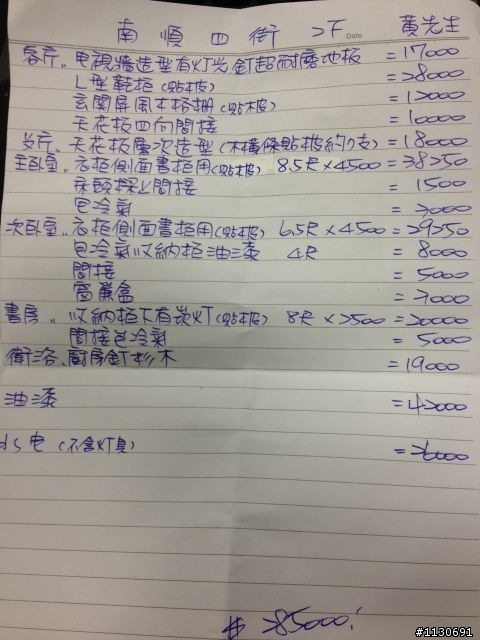 南順四街 2F Date 黃先生
客厅:电視牆造型有灯光釘超耐磨地板 =17000
L型鞋柜(貼皮) =28000
玄関屏風木格柵(貼皮) =12000
天花板四向間接 =10000
歺厅:天花板層次造型(木橫條貼皮約7支) =18000
主臥室:衣柜側面書柜用(貼皮) 8.5尺×4500=38250
床頭 間接 =1500
包冷氣 =3000
次臥室:衣柜側面書柜用(貼皮) 6.5尺×4500=29250
包冷氣收納柜油漆 4尺 =8000
間接 =5000
窗簾盒 =3000
書房:收納柜下有崁灯(貼皮) 8尺×2500=20000
間接包冷氣 =5000
衛浴、廚房釘杉木 =19000
油漆 =42000
水电(不含灯具) =26000
# 285000!
#1130691